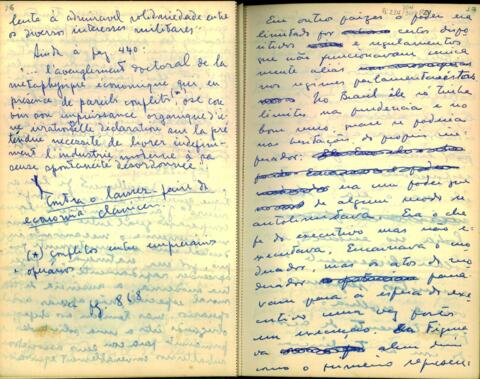 26
lenta à admiravel solidariedade entre
os diversos interesses militares.
Ainda à pag 440:
"... l'aveuglement doctoral de la
metaphysique économique qui, en
presence de pareils conflits (*), ose cou
vrir son impuissance organique d'u
ne irrationelle déclaration sur la pré
tendue necessité de livrer indefini
ment l'industrie moderne à sa
seule spontaneité desordonnée."
Contra o laisser-faire da
economia classica.
(*) conflitos entre empresarios
operarios
pg 868
27
Em outros paizes o poder era
limitado por certos dispo
sitivos e regulamentos
que não funcionavam unica
mente alias
nos regimes parlamentaristas
No Brasil êle só tinha
limites na prudencia e no
bom senso, quasi se poderia
nas hesitações do proprio im
perador:
era um poder que
de algum modo se
autolimitava. Era o che
fe do executivo mas não e
xecutava. Encarnava o mo
derador, mas os atos do mo
derador passa
vam para a esfera do exe
cutivo uma vez postos
em execução. Figura
va alem disso
como o primeiro represen